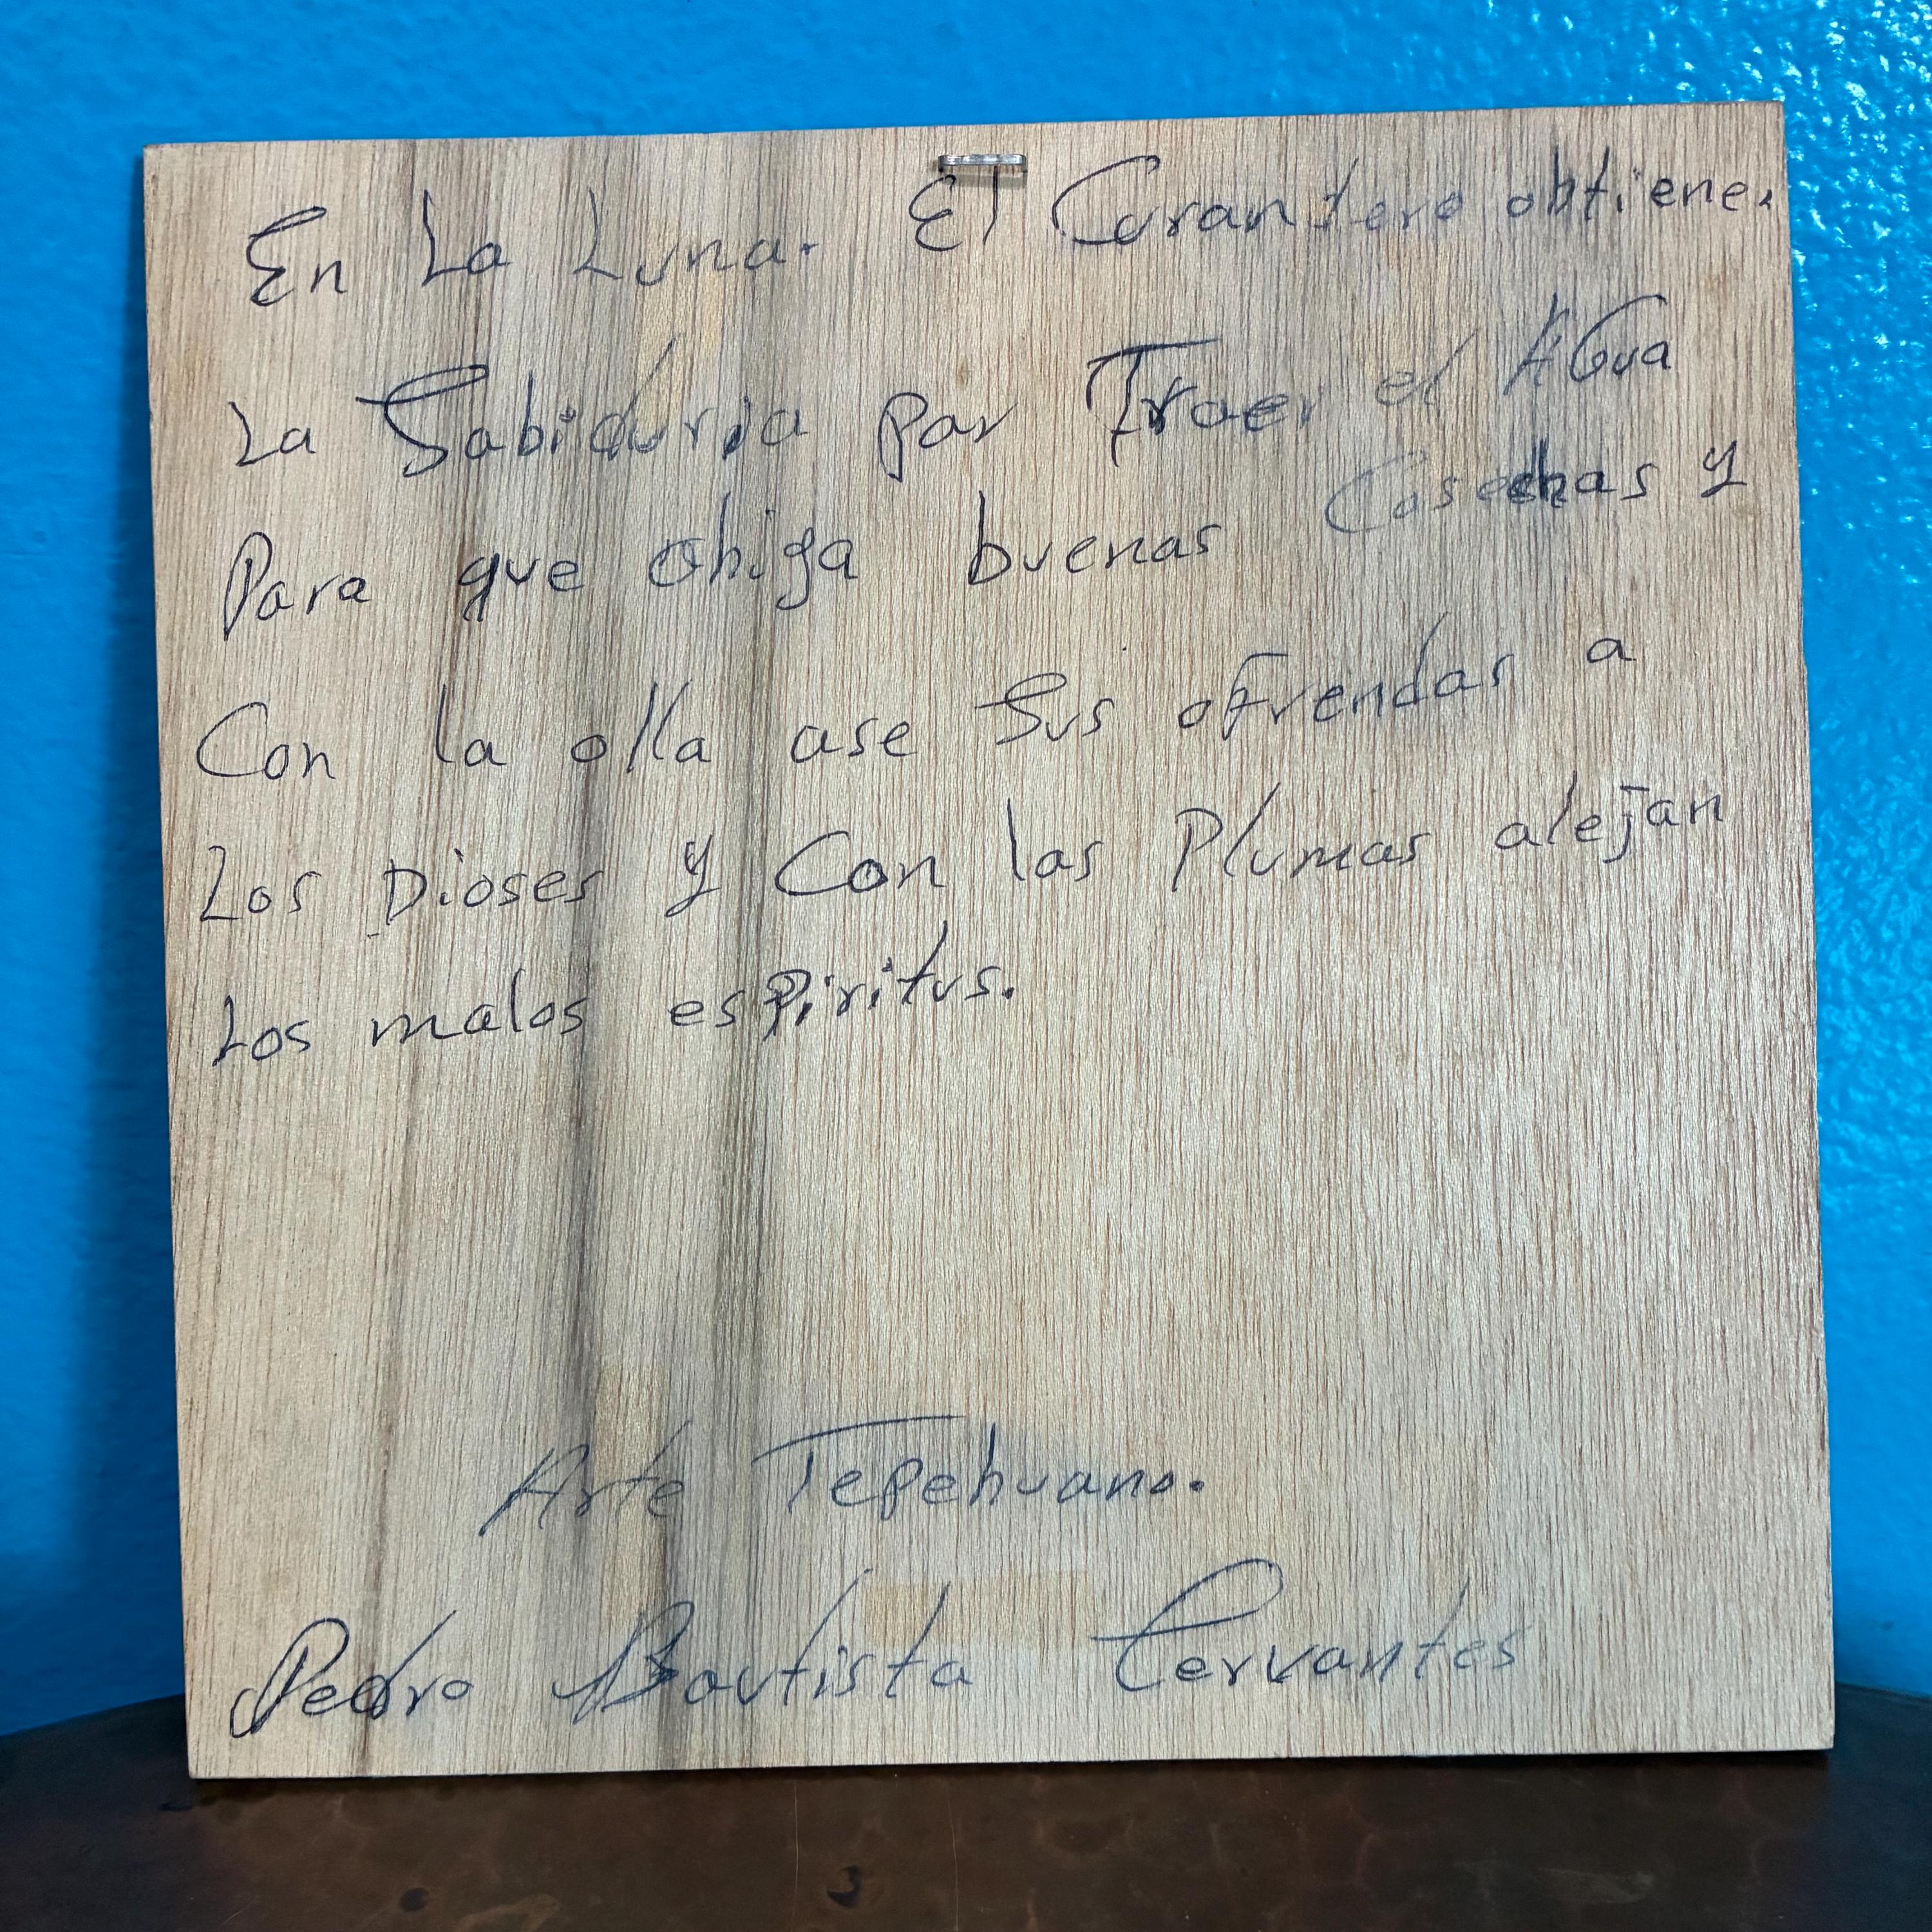 En La Luna. El Curantero obtiene.
La Sabiduria par Traer el AGua
Para que ohiga buenas Cosechas y
Con la olla ase Sus oFrendas a
Los Dioses y Con las Plumas alejan
Los malos espiritus.
Arte Tepehuano.
Pedro Bautista Cervantes